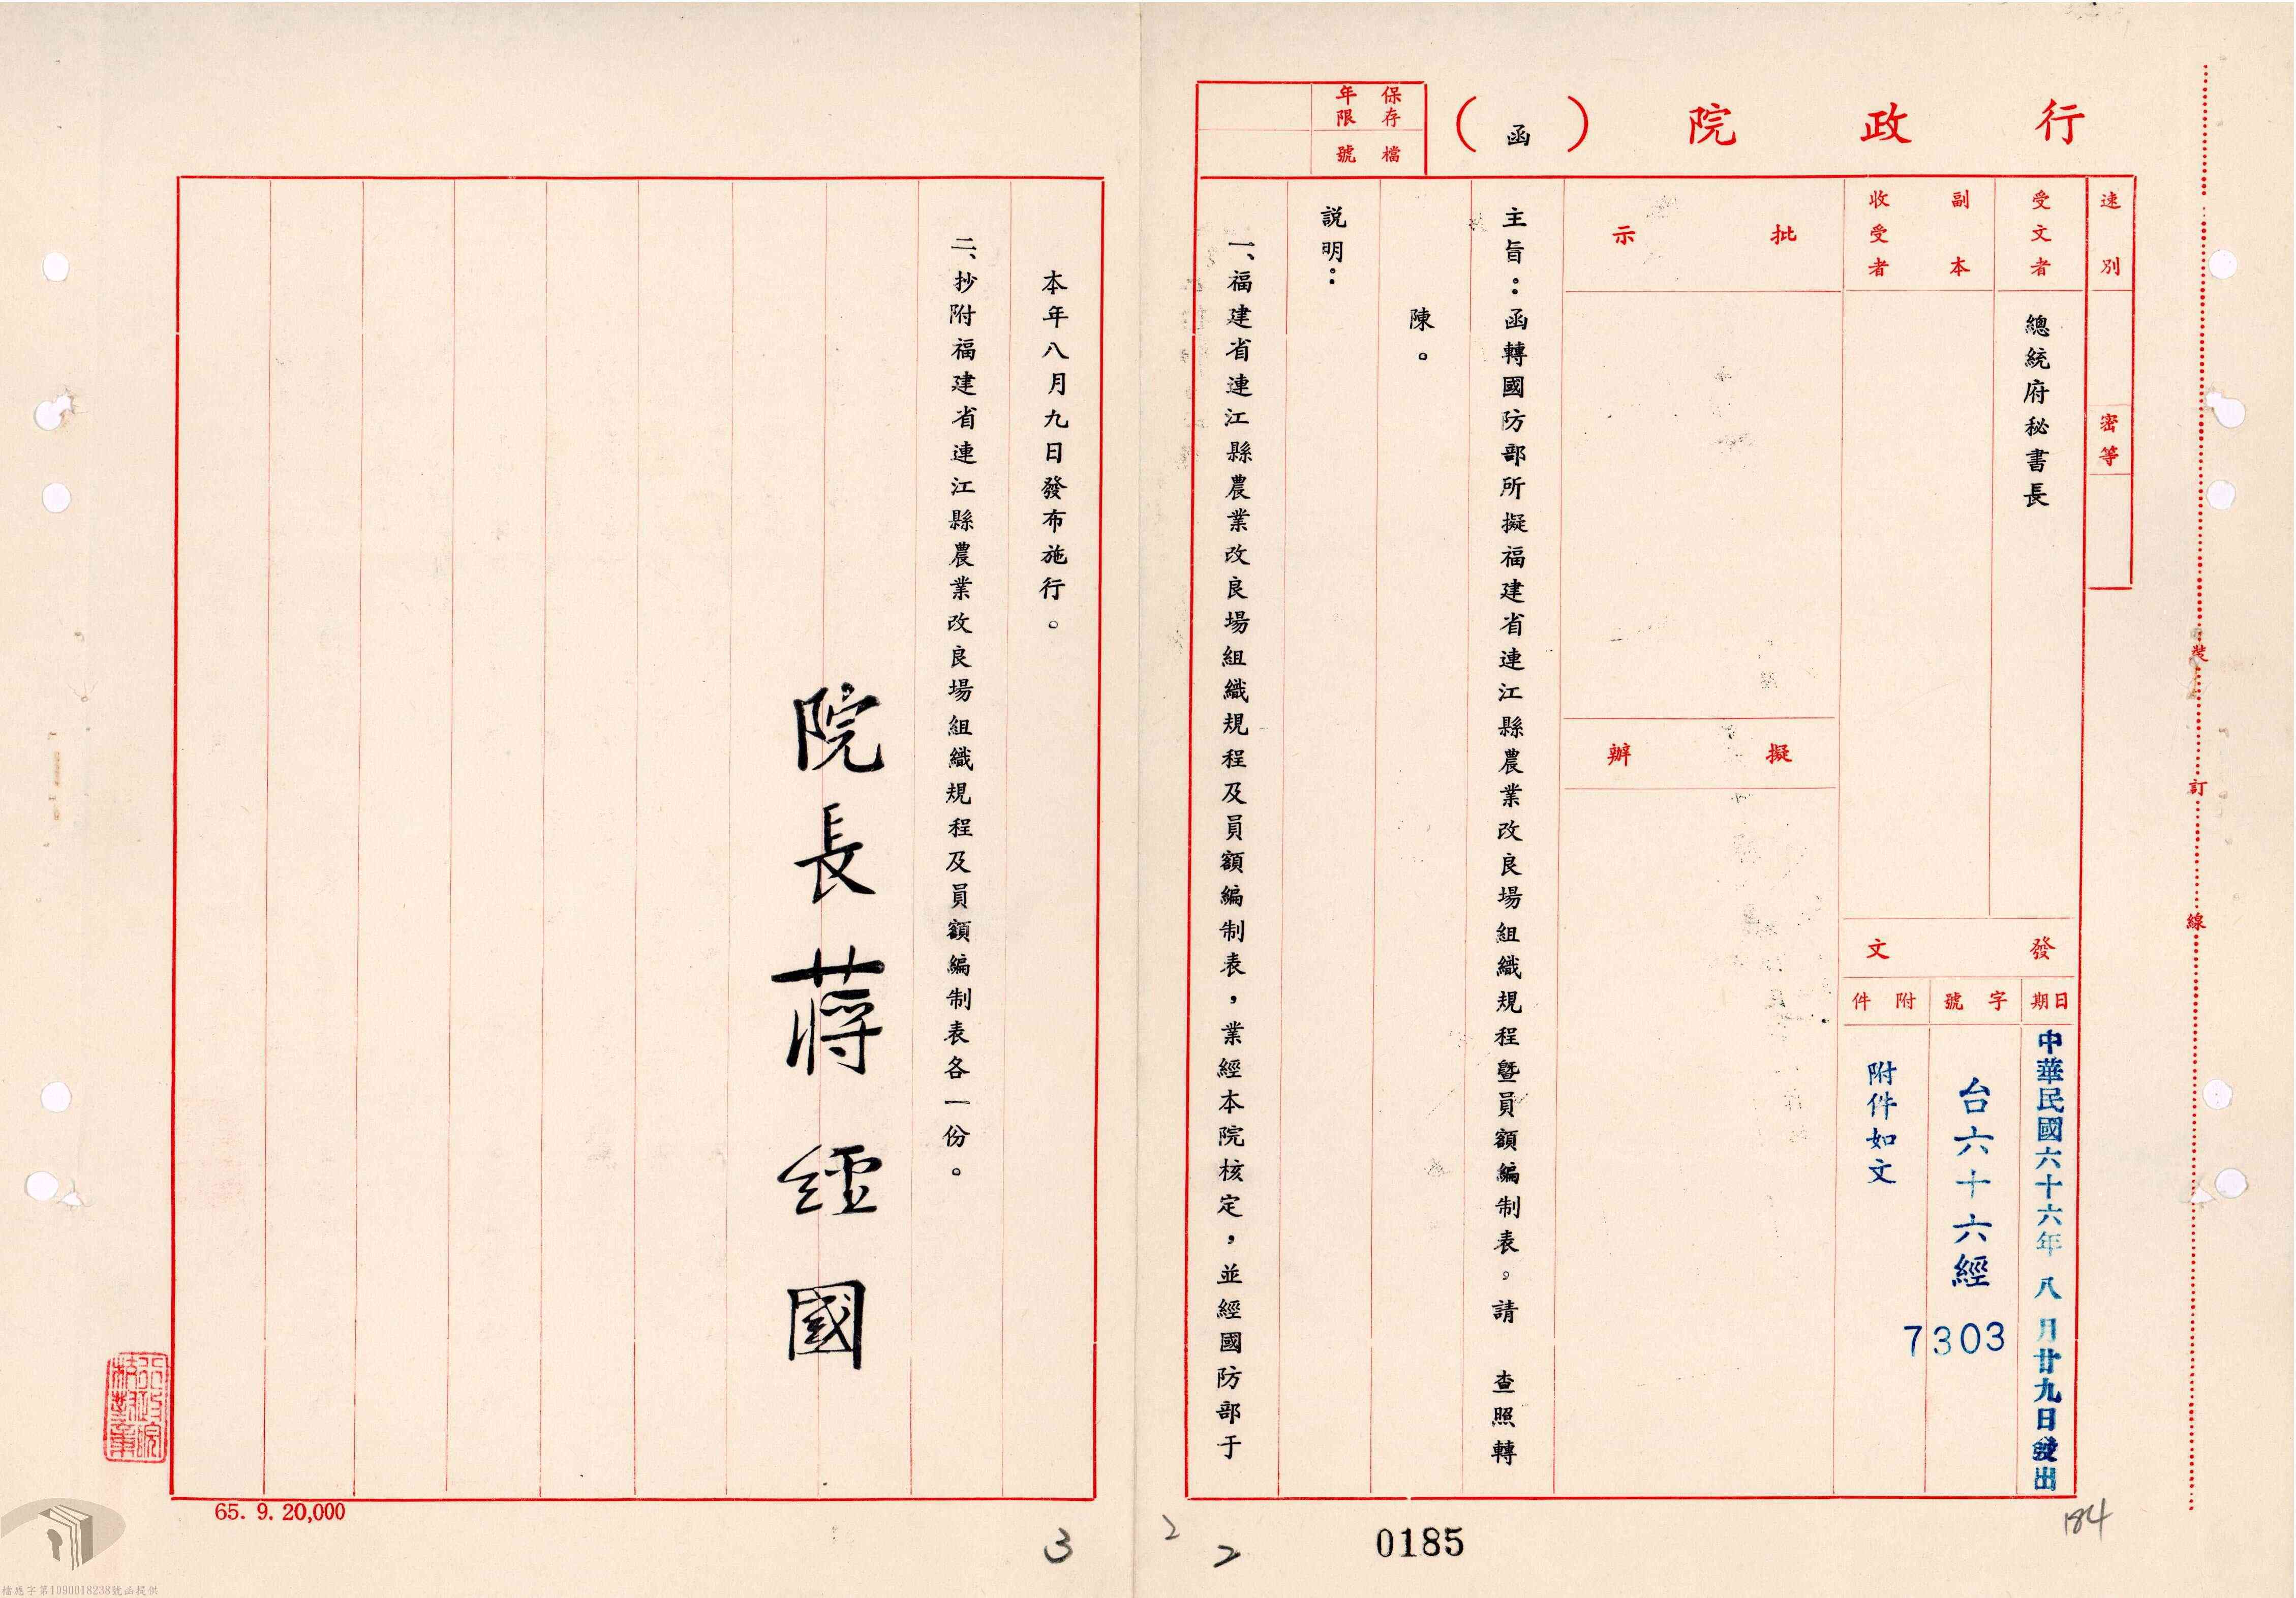 行政院
（函）
保存年限
檔號
速別
密等
受文者
總統府秘書長
副本收受者
發文
日期
中華民國六十六年八月廿九日發出
字號
台六十六經
7303
附件
附件如文
批示
擬辦
主旨：函轉國防部所擬福建省連江縣農業改良場組織規程暨員額編制表。請　查照轉
陳。
説明：
一、福建省連江縣農業改良場組織規程及員額編制表，業經本院核定，並經國防部于
本年八月九日發布施行。
二、抄附福建省連江縣農業改良場組織規程及員額編制表各一份。
院長蔣經國
裝
訂
線
65. 9. 20,000
3
2
2
0185
184
檔應字第1090018238號函提供